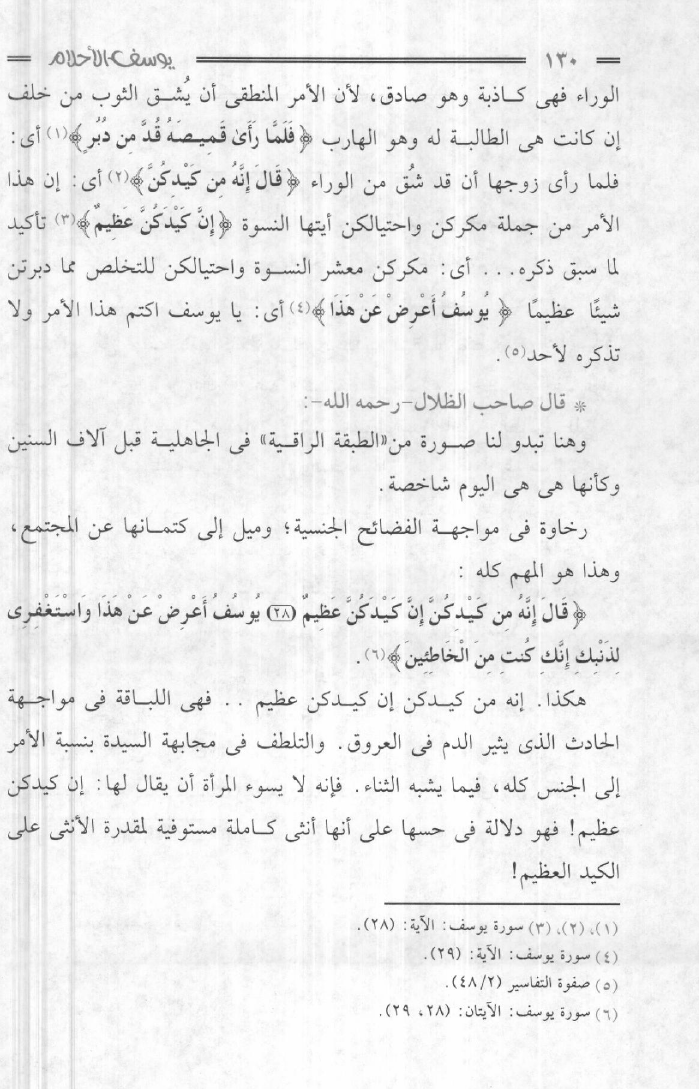 ١٣٠
يوسف الأحلام
الوراء فهى كاذبة وهو صادق، لأن الأمر المنطقى أن يُشق الثوب من خلف
إن كانت هى الطالبة له وهو الهارب ﴿ فَلَمَّا رَأَىٰ قَمِيصَهُ قُدَّ مِن دُبُرٍ ﴾(١) أى:
فلما رأى زوجها أن قد شُق من الوراء ﴿ قَالَ إِنَّهُ مِن كَيْدِكُنَّ ﴾(٢) أى: إن هذا
الأمر من جملة مكركن واحتيالكن أيتها النسوة ﴿ إِنَّ كَيْدَكُنَّ عَظِيمٌ ﴾(٣) تأكيد
لما سبق ذكره... أى: مكركن معشر النسوة واحتيالكن للتخلص مما دبرتن
شيئًا عظيمًا ﴿ يُوسُفُ أَعْرِضْ عَنْ هَذَا ﴾(٤) أى: يا يوسف اكتم هذا الأمر ولا
تذكره لأحد(٥).
* قال صاحب الظلال-رحمه الله-:
وهنا تبدو لنا صورة من«الطبقة الراقية» فى الجاهلية قبل آلاف السنين
وكأنها هى هى اليوم شاخصة.
رخاوة فى مواجهة الفضائح الجنسية؛ وميل إلى كتمانها عن المجتمع،
وهذا هو المهم كله :
﴿ قَالَ إِنَّهُ مِن كَيْدِكُنَّ إِنَّ كَيْدَكُنَّ عَظِيمٌ (٢٨) يُوسُفُ أَعْرِضْ عَنْ هَذَا وَاسْتَغْفِرِى
لِذَنْبِكِ إِنَّكِ كُنتِ مِنَ الْخَاطِئِينَ ﴾(٦).
هكذا. إنه من كيدكن إن كيدكن عظيم .. فهى اللباقة فى مواجهة
الحادث الذى يثير الدم فى العروق. والتلطف فى مجابهة السيدة بنسبة الأمر
إلى الجنس كله، فيما يشبه الثناء. فإنه لا يسوء المرأة أن يقال لها: إن كيدكن
عظيم! فهو دلالة فى حسها على أنها أنثى كاملة مستوفية لمقدرة الأنثى على
الكيد العظيم!
(١)، (٢)، (٣) سورة يوسف: الآية: (٢٨).
(٤) سورة يوسف: الآية: (٢٩).
(٥) صفوة التفاسير (٤٨/٢).
(٦) سورة يوسف: الآيتان: (٢٨، ٢٩).